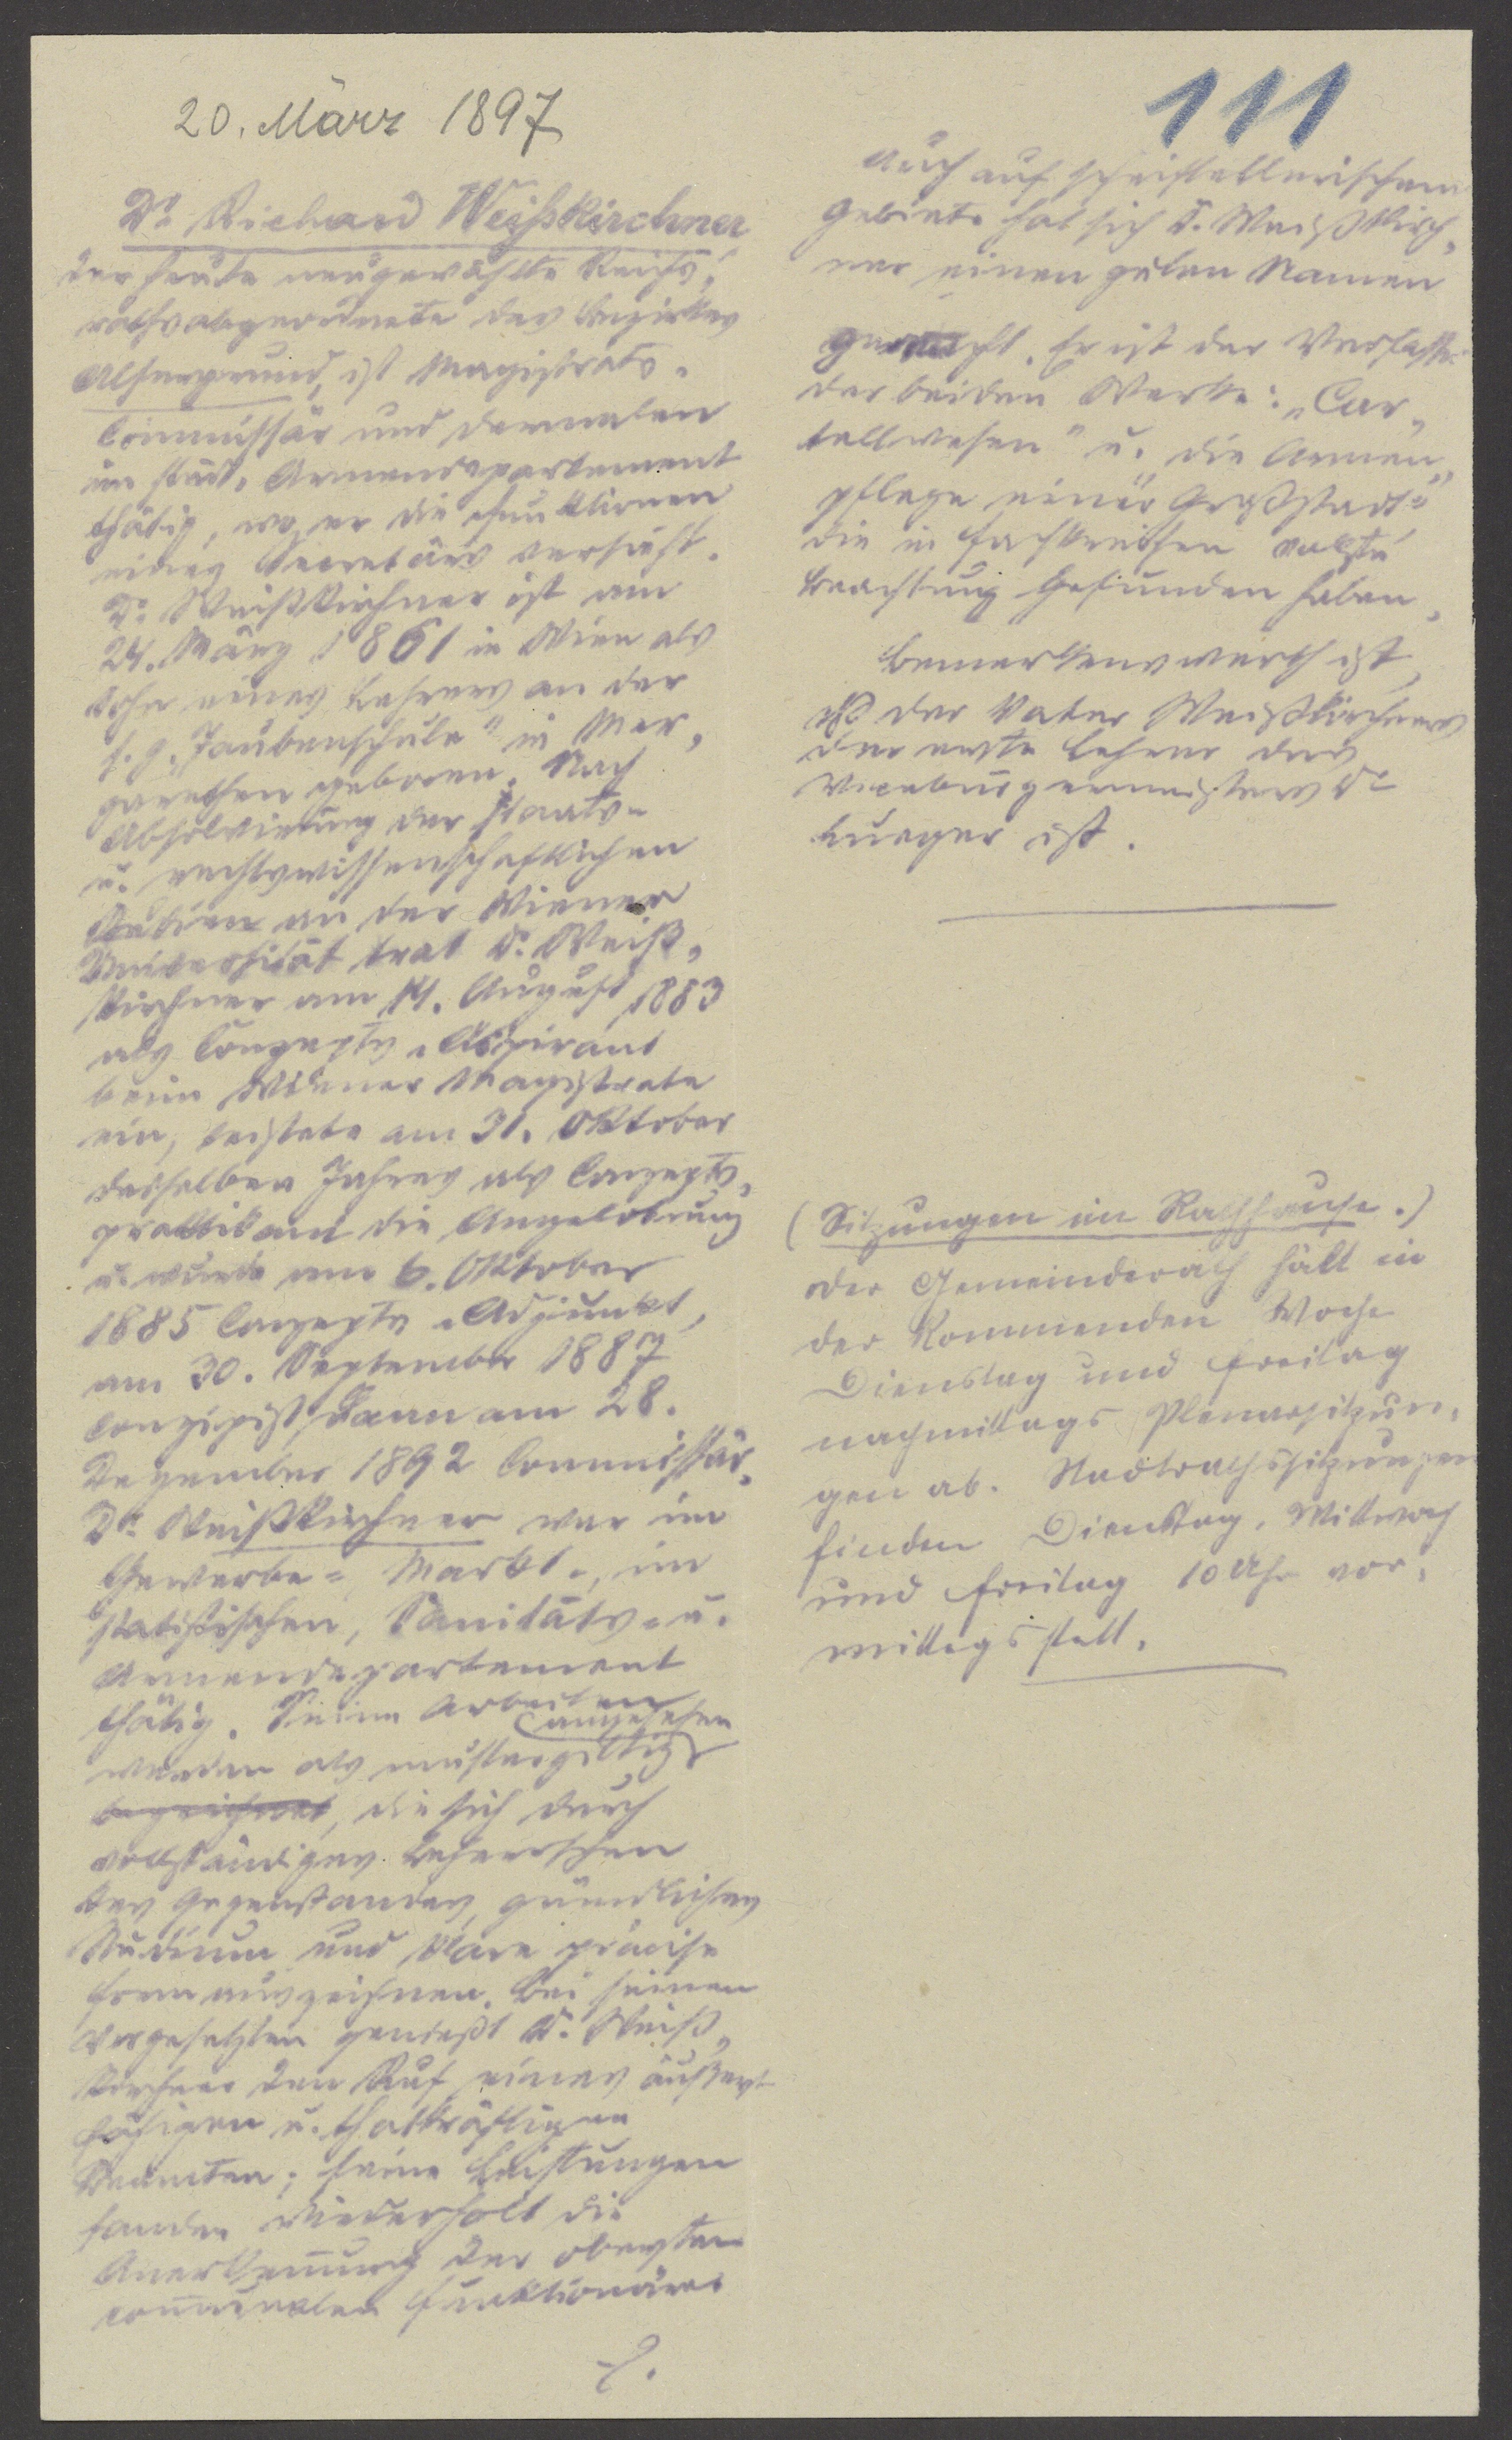 20. März 1897
111
Dr Richard Weißkirchner
der heute neugewählte Reichs-
rathsabgeordnete des Bezirkes
Alsergrund, ist Magistrats-
Commissär und dermalen
im städt. Armendepartement
thätig, wo er die Funktionen
eines Secretärs versieht.
Dr Weißkirchner ist am
24. März 1861 in Wien als
Sohn eines Lehrers an der
s. g. „Taubenschule" in Mar-
garethen geboren. Nach
Absolvierung der staats-
u. rechtswissenschaftlichen
Studien an der Wiener
Universität trat Dr. Weiß-
kirchner am 14. August 1883
als Conzepts-Aspirant
beim Wiener Magistrate
ein, leistete am 31. Oktober
desselben Jahres als Conzepts-
praktikant die Angelobung
u. wurde am 6. Oktober
1885 Conzepts-Adjunkt,
am 30. September 1887
Conzipist, dann am 28.
Dezember 1892 Commissär.
Dr Weißkirchner war im
Gewerbe-, Markt-, im
statistischen, Sanitäts- u.
Armendepartement
thätig. Seine Arbeiten
angesehen
werden als mustergiltig
bezeichnet, die sich durch
vollständiges Beherrschen
des Gegenstandes, gründliches
Studium und klare präcise
Form auszeichnen. Bei seinen
Vorgesetzten genießt Dr. Weiß-
kirchner den Ruf eines äußerst
fähigen u. thatkräftigen
Beamten; seine Leistungen
fanden wiederholt die
Anerkennung der obersten
communalen Funktionäre.
Auch auf schriftstellerischem
Gebiete hat sich Dr. Weißkirch-
ner einen guten Namen
gemacht. Er ist der Verfasser
der beiden Werke: „Car-
tellwesen" u. „die Armen-
pflege einer Großstadt"
die in Fachkreisen vollste
Beachtung gefunden haben.
Bemerkenswerth ist,
daß der Vater Weißkirchners
der erste Lehrer des
Vicebürgermeisters Dr
Lueger ist.
(Sitzungen im Rathhause.)
Der Gemeinderath hält in
der kommenden Woche
Dienstag und Freitag
nachmittags Plenarsitzun-
gen ab. Stadtrathssitzungen
finden Dienstag, Mittwoch
und Freitag 10 Uhr vor-
mittags statt.